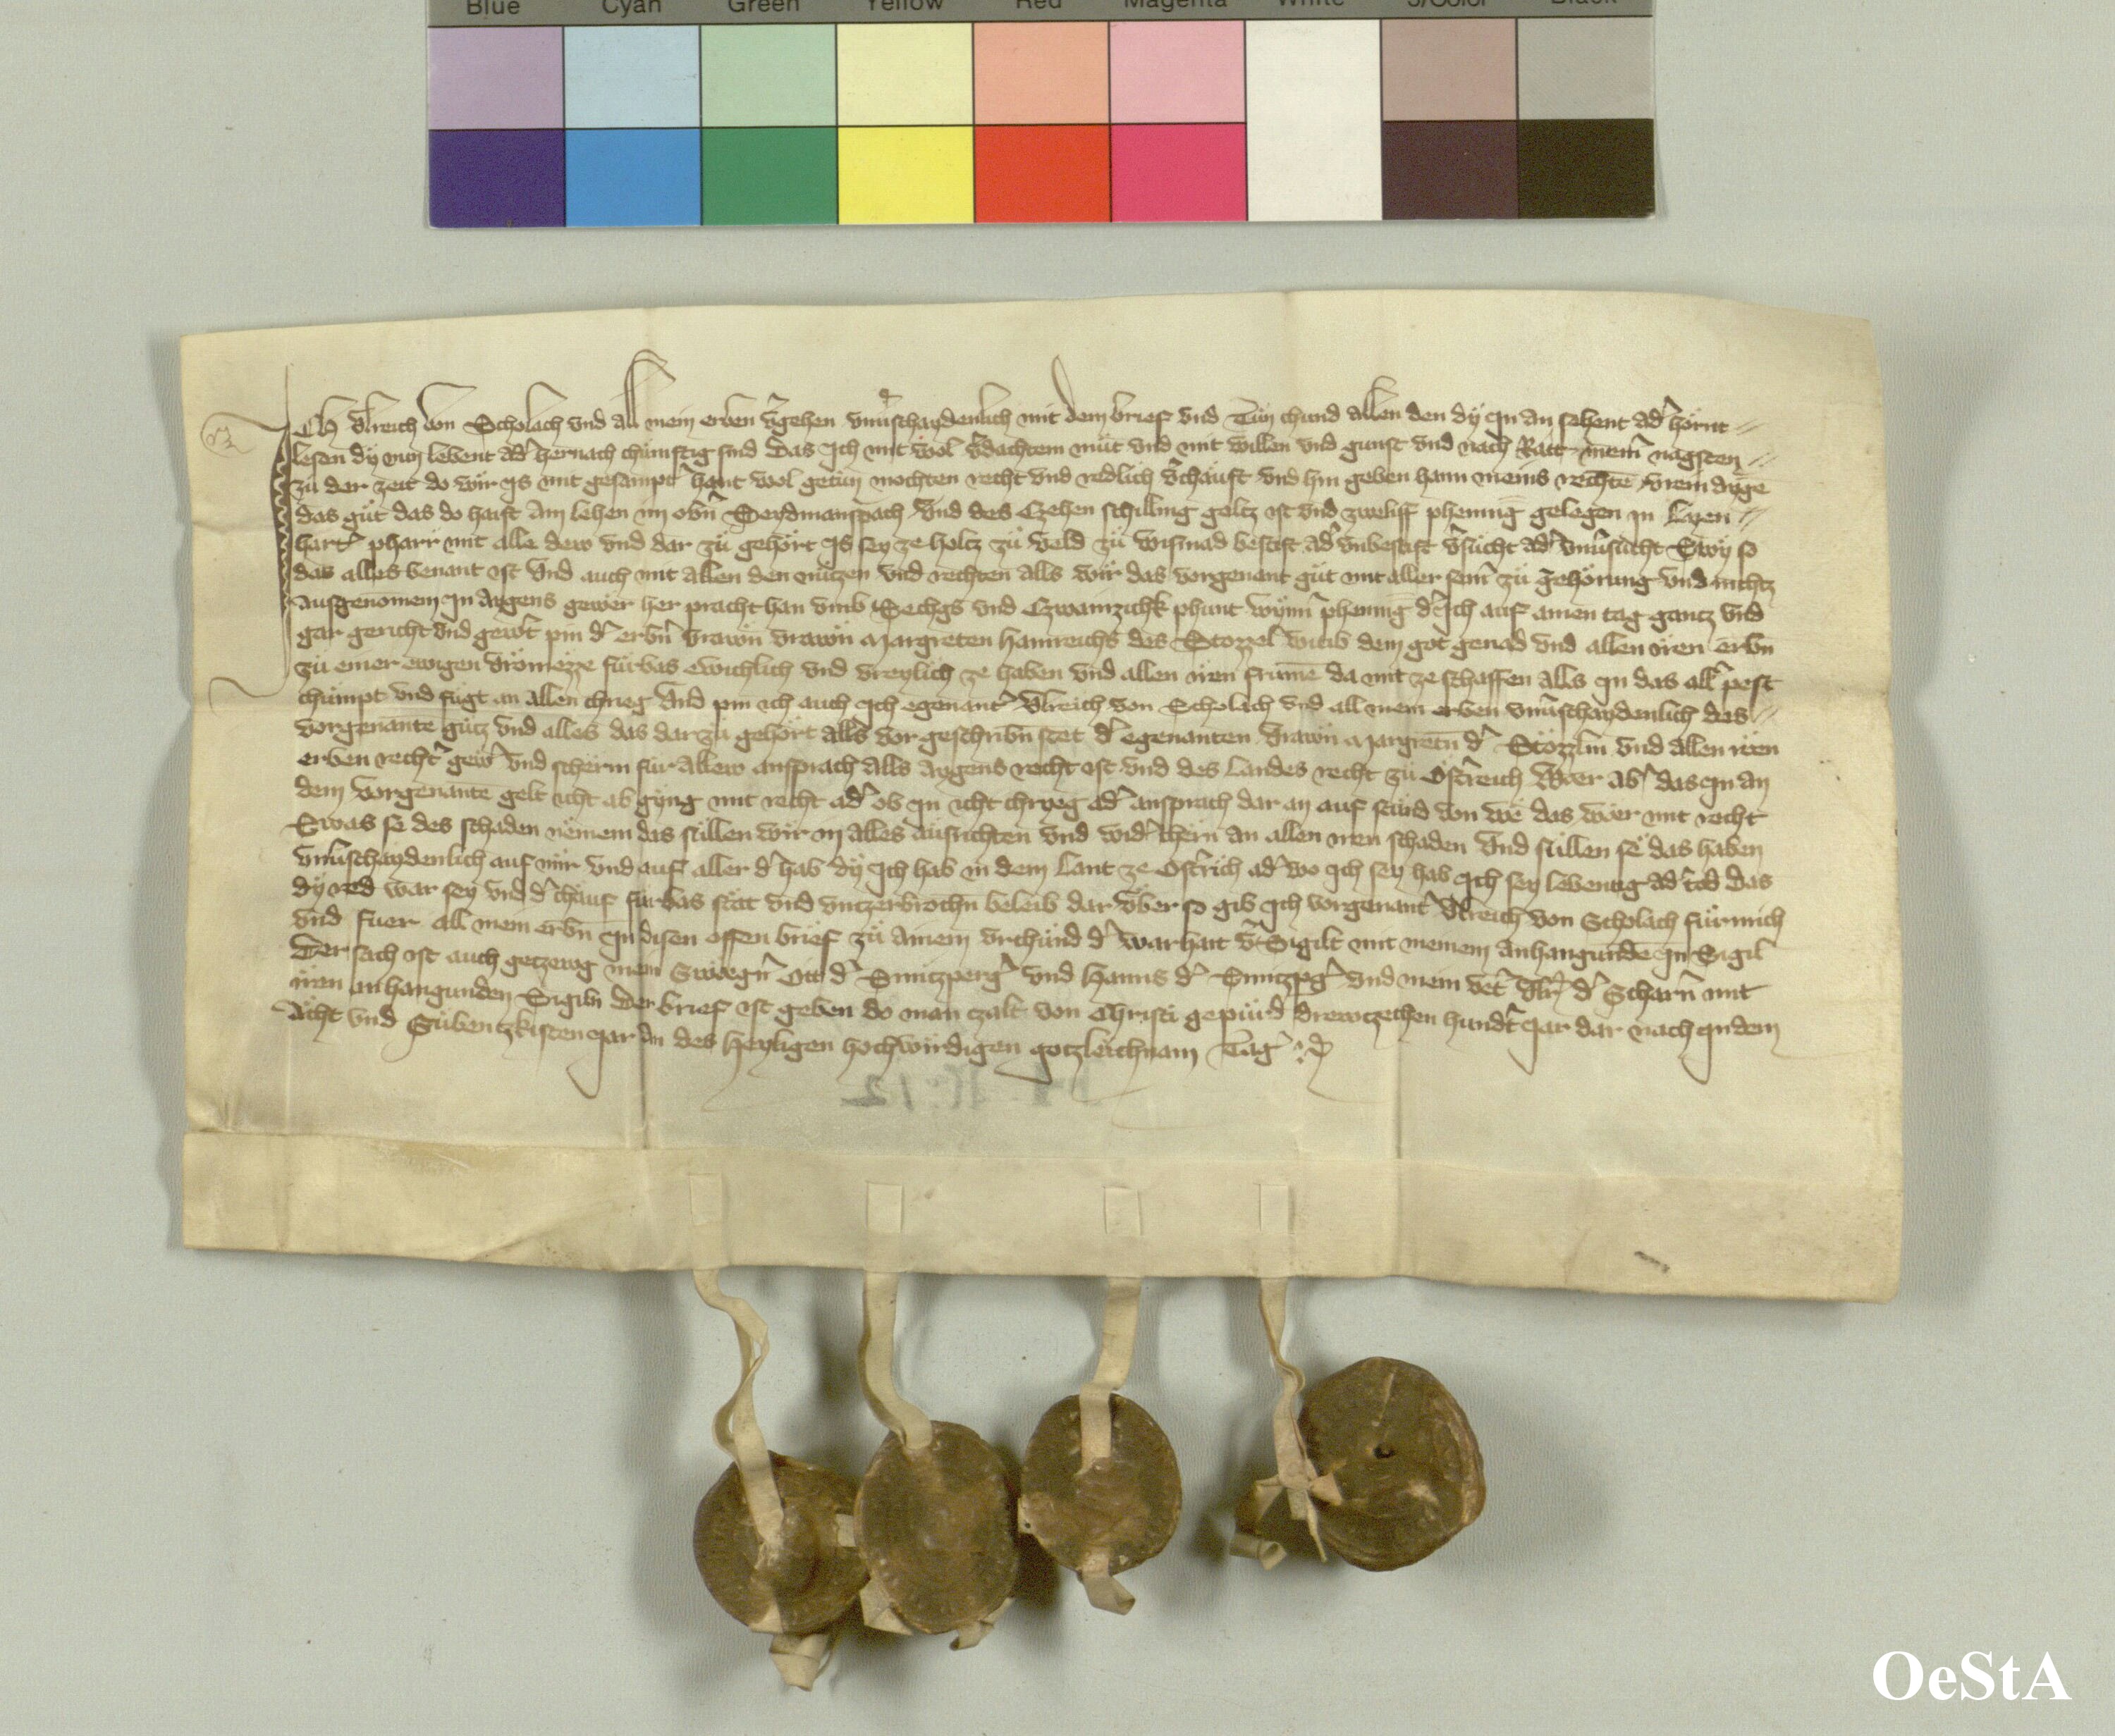 Blue Cyan Green Yellow Red Magenta White 3/Color Black
Ich Ulreich von Scholach und all mein erben v̄gehen unv̄schaydenlich mit dem brief und Tün chund allen den dÿ jn an sehent adˀ hörnt
lesen dÿ nuͦ lebent adˀ hernach chümftig sind Das Ich mit wol v̄dachtem müt und mit willen und gunst und nach Ratt meinˀ nägsten
zü der zeit do wir js mit gesampt hant wol getün mochten recht und redlich v̄chauft und hin geben hann meins rechtē vreīn ayge
das güt das do haist Am lehen in obn̄ Seydmanspach Und des Czehen schilling geltz ist und zweliff phennīg gelegen in Lazen
hartˀ pharr mit alle dew und dar zü gehört Is sey ze holtz zü veld zü wismad bestift adˀ unbestift v̄sücht adˀ unv̄sücht Swÿ so
das alles benant ist Und auch mit allen den nützen und rechten alls wir das vorgenant güt mit aller seinˀ zü gehörung und nichtz
Ausgenomen In Aygens gewer her pracht han umb Sechgs und Czwainzichk phunt wynnˀ phennīg dˀ Ich auf ainen tag gantz und
gar gericht und gewert pin dˀ erbn̄ vrawn vrawn Margreten Hainreichs des Stozzel witib dem got genad und allen iren erbn̄
zü einer ewigen vrömezze fürbas ewichlich und vreylich ze haben und allen iren frumē da mit ze schaffen alls In das allˀ pest
chümpt und fügt an allen chrieg Und pin ich auch Ich egenantˀ Ulreich von Scholach und all mein erben unv̄schaydenlich des
vorgenantē gütz und alles das dar zü gehört alls vor geschribn̄ stet dˀ egenanten vrawn Margretn̄ dˀ Stözzlin und allen iren
erben rechtˀ gewˀ und scherm für Allew ansprach alls Aygens recht ist und des Landes recht zü Östˀreich Wer abˀ das In an
dem vorgenantē gelt icht ab gÿng mit recht adˀ ob In icht chryeg adˀ ansprach dar an auf stünd von wē das wer mit recht
Swas se des schaden nëmen das süllen wir in alles ausrichten und widˀ chern an allen iren schaden Und süllen se das haben
unv̄schaydenlich auf mir und auf aller dˀ hab dÿ Ich hab in dem Lant ze Östˀrich adˀ wo Ich sey hab Ich sey lebentig adˀ tod das
dÿ red war sey und dˀ chauf fürbas stät und unczerbrochn̄ beleib dar über so gib Ich vorgenantˀ Ulreich von Scholach für mich
und fuer all mein erbn̄ In disen offen brief zü ainem urchünd dˀ warhait v̄Sigilt mit meinem anhangundē In Sigil
Der sach ist auch getzewg mein Swegrˀ Ott dˀ Sinitzpergˀ und Hanns dˀ Sinitzpgˀ und mein vetˀ Ulr̄ dˀ Scharn̄ mit
iren anhangunden Sigiln Der brief ist geben do man czalt von Christi gepürd drewczehen hundˀt Jar dar nach In dem
Acht und Sübentzkisten Jar An des Heyligen hochwirdigen gotzleichnam Tag
OeStA